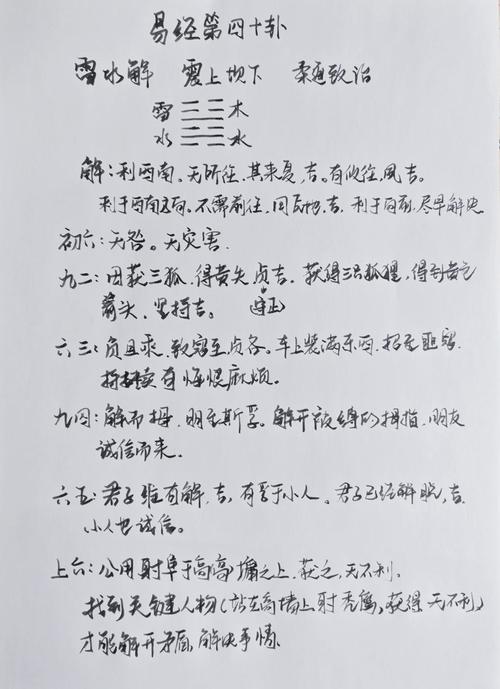 易经第四十卦
雷水解 震上坎下 柔道致治
雷 木
水 水
解：利西南。无所往，其来复，吉。有攸往，夙吉。
利于西南方向。不需前往，回原地，吉，利于向前，尽早解决
初六：无咎。无灾害．
九二：田获三狐．得黄矢．贞吉。获得三只狐狸，得到黄色
箭头．坚持吉。 守正
六三：负且乘．致寇至，贞吝。车上装满东西．招至匪寇．
持续有悔恨麻烦。
九四：解而拇．朋至斯孚。解开被缚的拇指．朋友
诚信而来．
六五：君子维有解．吉，有孚于小人。君子已经解脱，吉．
小人也诚信。
上六：公用射隼于高墉之上．获之，无不利．
找到关键人物（站在高墙上射秃鹰，获得 无不利）
才能解开矛盾，解决事情．